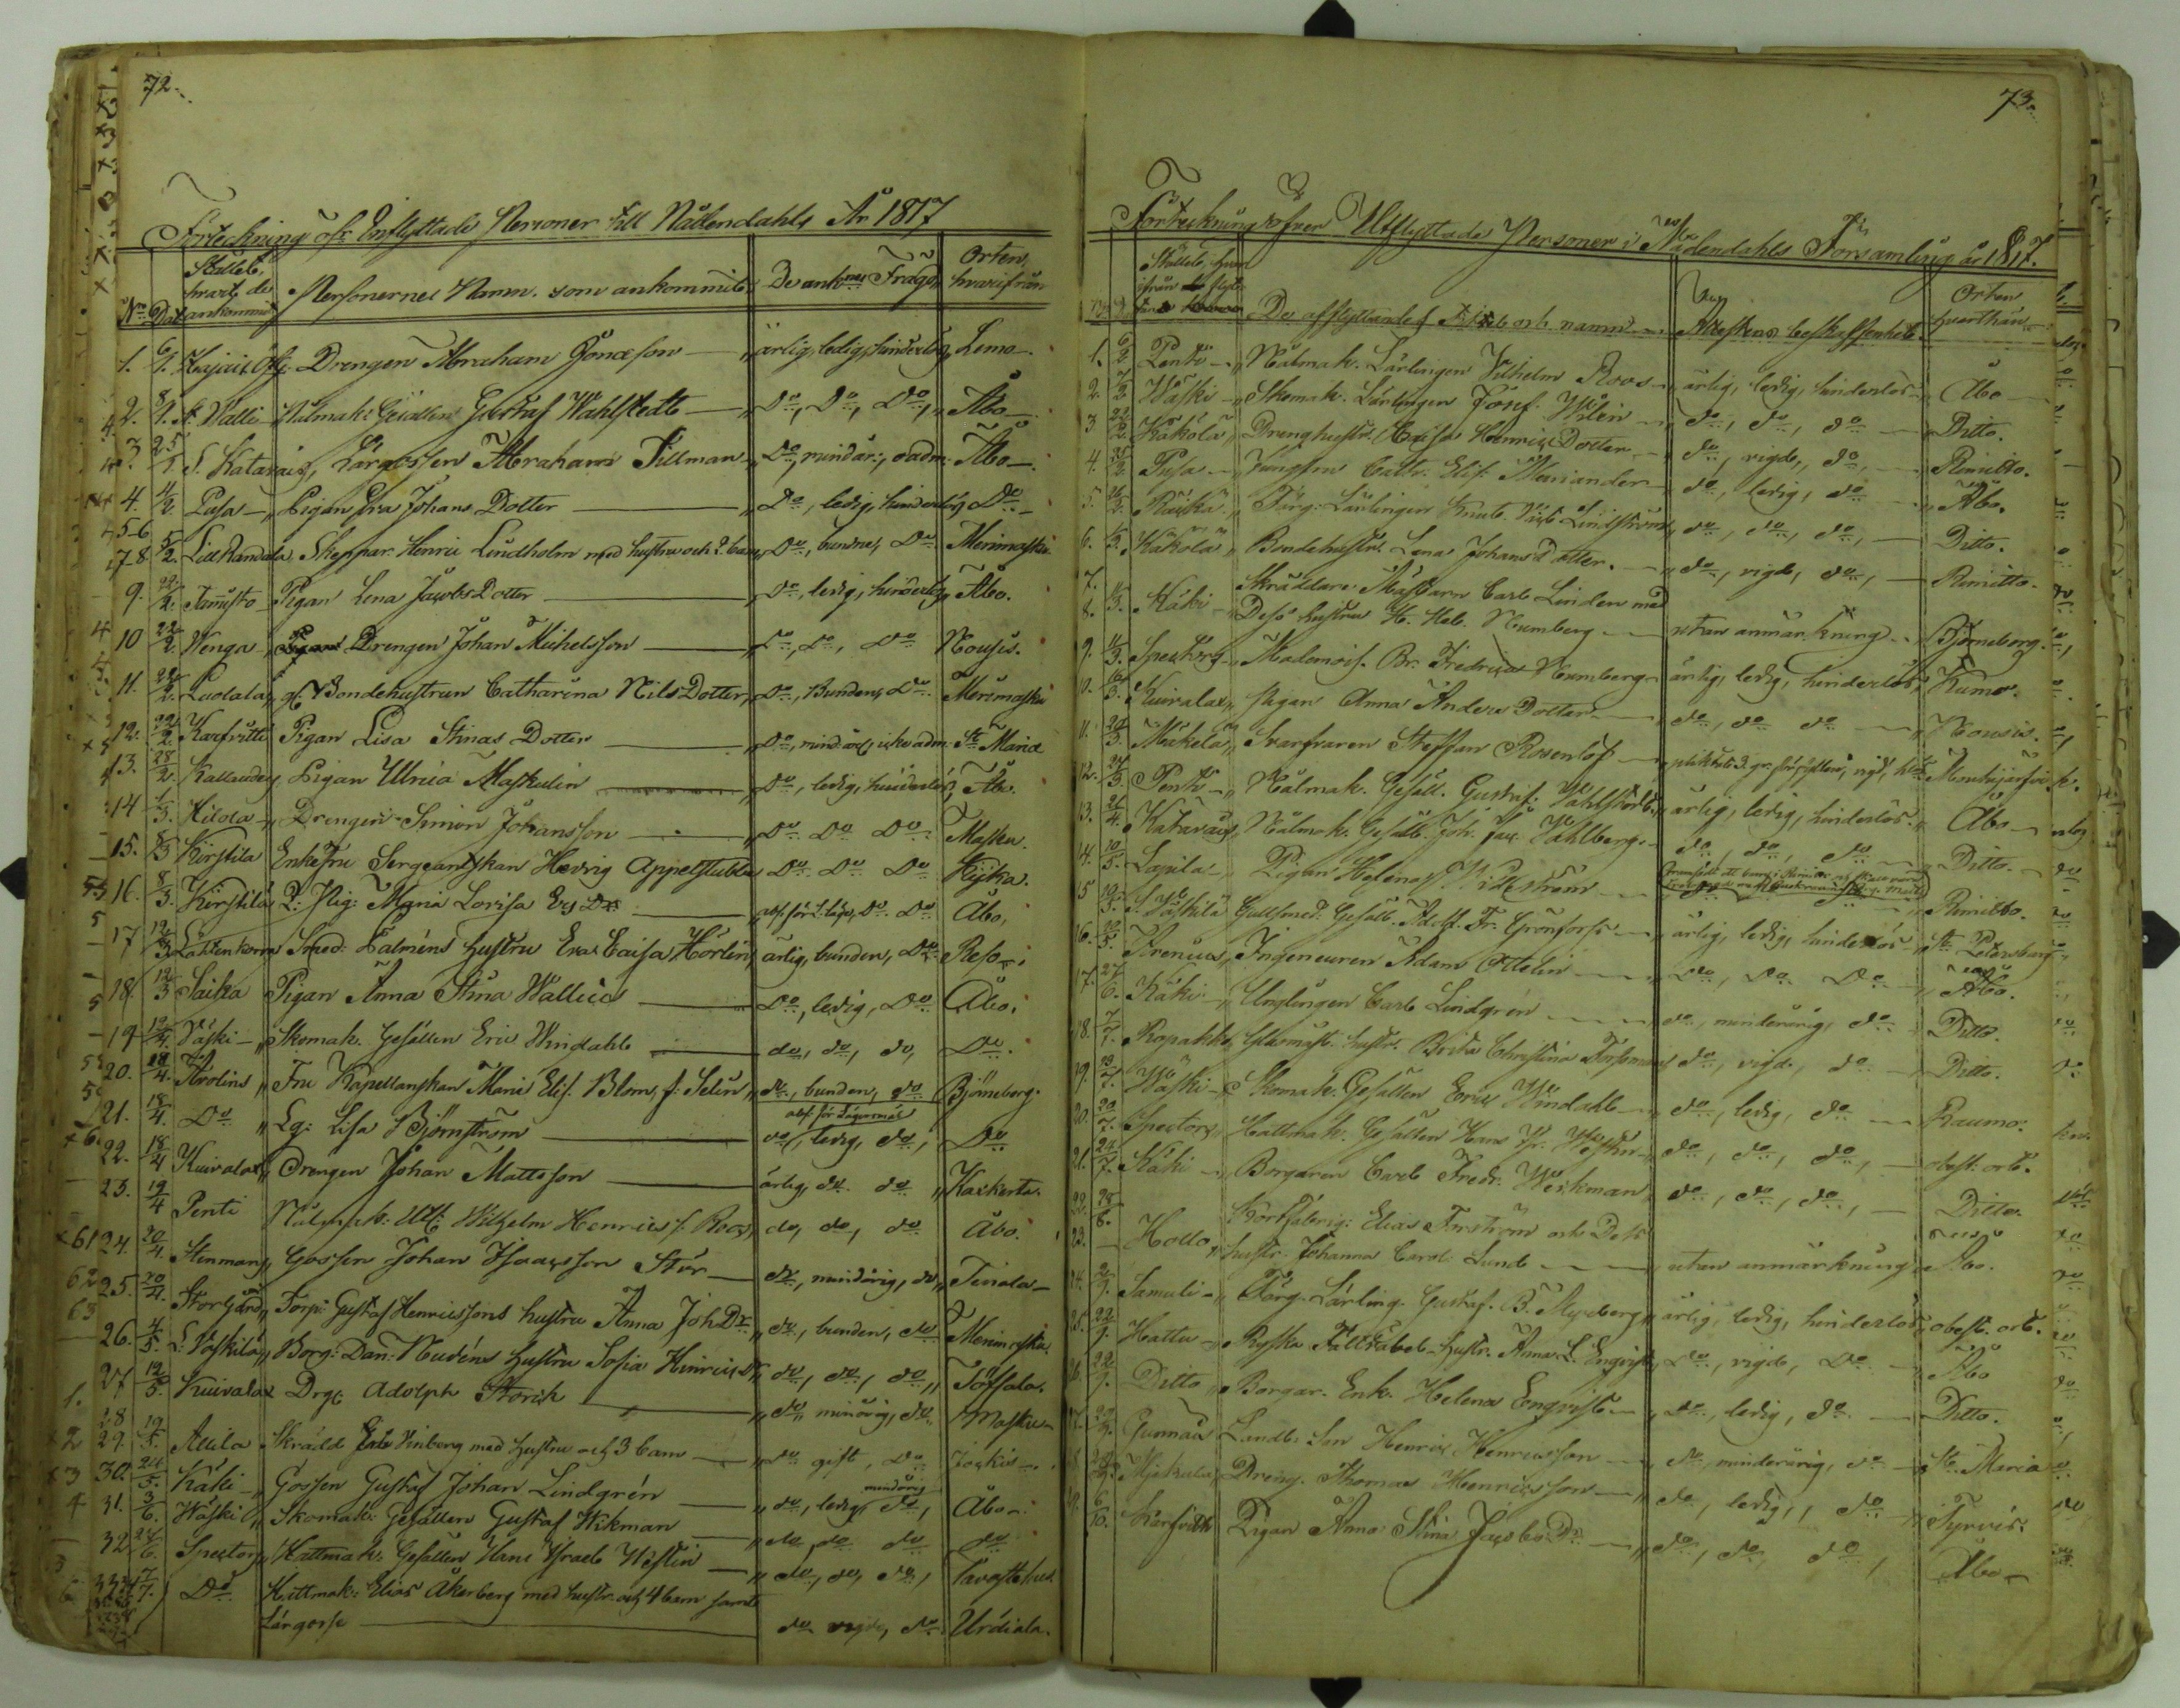 72.
Förteckning öfr. Inflyttade Personer till Nådendahls År 1817
No Dat. Stället, hvart de ankommit Personernes Namn som ankommit De anknes Frägd Orten, hvarifrån
1. 6/1. Drengen Abraham Jonæson ärlig, ledig, hinderlös, Lemo
2. 8/1. Nålmak: Gesällen Gustaf Wahlstedt Do, Do, Do, Åbo
3. 25/1. S. Katarais, Lärgossen Abraham Tillman Do, mindår:, oadm: Åbo
4. 4/2. Pusa Pigan Johans Dotter Do, ledig, hinderlös, Do
5-6 7-8. 5/2. Skeppar Henric Lindholm med hustru och 2. barn, Do, bundne, Do Merimasku
9. 22/2. Pigan Lena Jacobs Dotter Do, ledig, hinderlös, Åbo.
10 22/2. Wenga Drengen Johan Michelsson Do, Do, Do Nousis.
11. 22/2. Bondehustrun Catharina Nils Dotter, Do, Bunden, Do Merimasku
12. 22/2. Karfvitti Pigan Lisa Stinas Dotter Do, mindårig, icke adm: St Maria
13. 28/2. Pigan Ulrica Maskulin Do, ledig, hinderlös, Åbo.
14 1/3. Drengen Simon Johansson Do Do Do Masku.
15. 8/3 Kirstila Enkefru Sergeantskan Hedvig Appelstubbe Do Do Do
16. 8/3. Kirstila P: Pig: Maria Lovisa Ers Dr. Do Do Åbo,
17 12/3 Smed: Palméns hustru Eva Caisa Hörlin, ärlig, bunden, Do Reso
18. 12/3 Saika Pigan Anna Stina Wallius Do, ledig, Do Åbo.
19 12/4. Väski Skomak. Gesällen Eric Windahl do, do, do, Do
20. 18/4. Arolins Fru Kapellanskan Maria Elis. Blom, f. Selin, do, bunden, do Björneborg.
21. 18/4. Do Lg: Lisa Björnström do, ledig, do, Do
22. 18/4 Kuivalax, Drengen Johan Mattsson ärlig, do do Kakerta.
23. 19/4 Penti Nålmak: Wilhelm Henrics s. Roos, do, do, do Åbo.
24. 20/4. Stenman, Gossen Johan Isaacsson Stör do, mindårig, do, Tenala
25. 20/4. Storgård, Torp: Gustaf Henricssons hustru Anna Joh Dr. do, bunden, do Merimasku.
26. 4/5. L. Väskilä, Borg: Dan: Nudéns hustru Sofia Hinrics Dr do, do, do, Töfsala.
27 12/5. Kuivalax Drgn: Adolph Storck do, minårig, do Masku
28 29. 19/5. Ailila Skrädd Winberg med hustru och 3 barn do gift, do Jockis
30. 24/5. Käki Gossen Gustaf Johan Lindgrén do, ledig, mindårig do, Åbo
31. 3/6. Wäski Skomak: Gesällen Gustaf Wikman do do do do
32 24/6. Spector, Hattmak: Gesällen Hans Israel Westlin do, do, do, Tavastehus
7/7. Do Hattmak: Elias Åkerberg med hustr. och 4 barn samt
Lärgosse do vigde, do Urdiala.
73.
Förteckning öfver Utflyttade Personer i Nådendahls Församling år 1817.
Stället, hvarifrån de flytt De afflyttandes och namn Attestens beskaffenhet Orten hvarthän
1. 6/2 Penti Nålmak. Lärlingen Vilhelm Roos ärlig, ledig, hinderlös Åbo
2. 7/2 Wäski Skomak. Lärlingen Josef Wilén do, do, do Ditto.
3 22/2. Käkölä, Drenghustr. Caisa Henrics Dotter do, vigd, do, Rimitto.
4. Pusa Jungfrun Cath. Elis. Meriander do, ledig, do Åbo.
5. Färg: Lärlingen Knut Lindström do, do, do, Ditto.
6. Käkölä, Bondehustr. Lena Johans Dotter. do, vigd, do, Rimitto.
7. Skräddare Mästarn Carl Linden med
8. Käki Dess hustru H. Hel. Numberg utan anmärkning Björneborg.
9. Mademois. Br. Fredrica Numberg ärlig, ledig, hinderlös, Kumo.
10. Kuivalax, Pigan Anna Anders Dotter do, do do Nousis.
11. Mäkelä, Svarfvaren Steffan Rosenlöf
12. Penti Nålmak. Gesäll. Gustaf Wahlstedt ärlig, ledig, hinderlös. Åbo
13. Katarais, Nålmak. Gesäll. Joh. Jac. Wahlberg. do, do, do Ditto.
14. 10/5. Lapila Pigan Helena Widström Rimitto.
15 L. Väskilä Gullsmed: Gesäll. Adolf. Fr. Grönfors ärlig, ledig, hinderlös St. Petersburg
16. Arenius, Ingeneuren Adam Ottelin Do, Do Do Åbo.
17. 27/6. Käki Ynglingen Carl Lindgrén do, minderårig, do Ditto.
18. 7/7. Glasmäst. hustr. Brita Christina Forsman do, vigd, do Ditto.
19. Wäski Skomak. Gesällen Eric Windahl do, ledig, do Raumo.
20. Spector, Hattmak. Gesällen Hans Isr. Westlin do, do, do, obest. ort.
21. Käki Borgaren Carl Fredr. Weckman do, do, do, Ditto.
22. 28/8. Elias Forström och Dess
23. Hollo hustr. Johanna Carol. Lund utan anmärkning Åbo.
24. Samuli Färg. Lärling. Gustaf. B. Nyberg ärlig, ledig, hinderlös, obest. ort.
25. 22/9. Hattu Ryska hustr. Anna L. Engqvist Do, vigd, Do Åbo
26. 22/9. Ditto Borgar. Enk. Helena Engqvist do, ledig, do Ditto.
27. Gunnais Landb. Son Henric Henricsson do, minderårig, do St. Maria
28. Dreng. Thomas Henricsson do, ledig, do Tyrvis.
29. 6/10. Karfvitti Pigan Anna Stina Jacobs Dr. do, do, do, Åbo